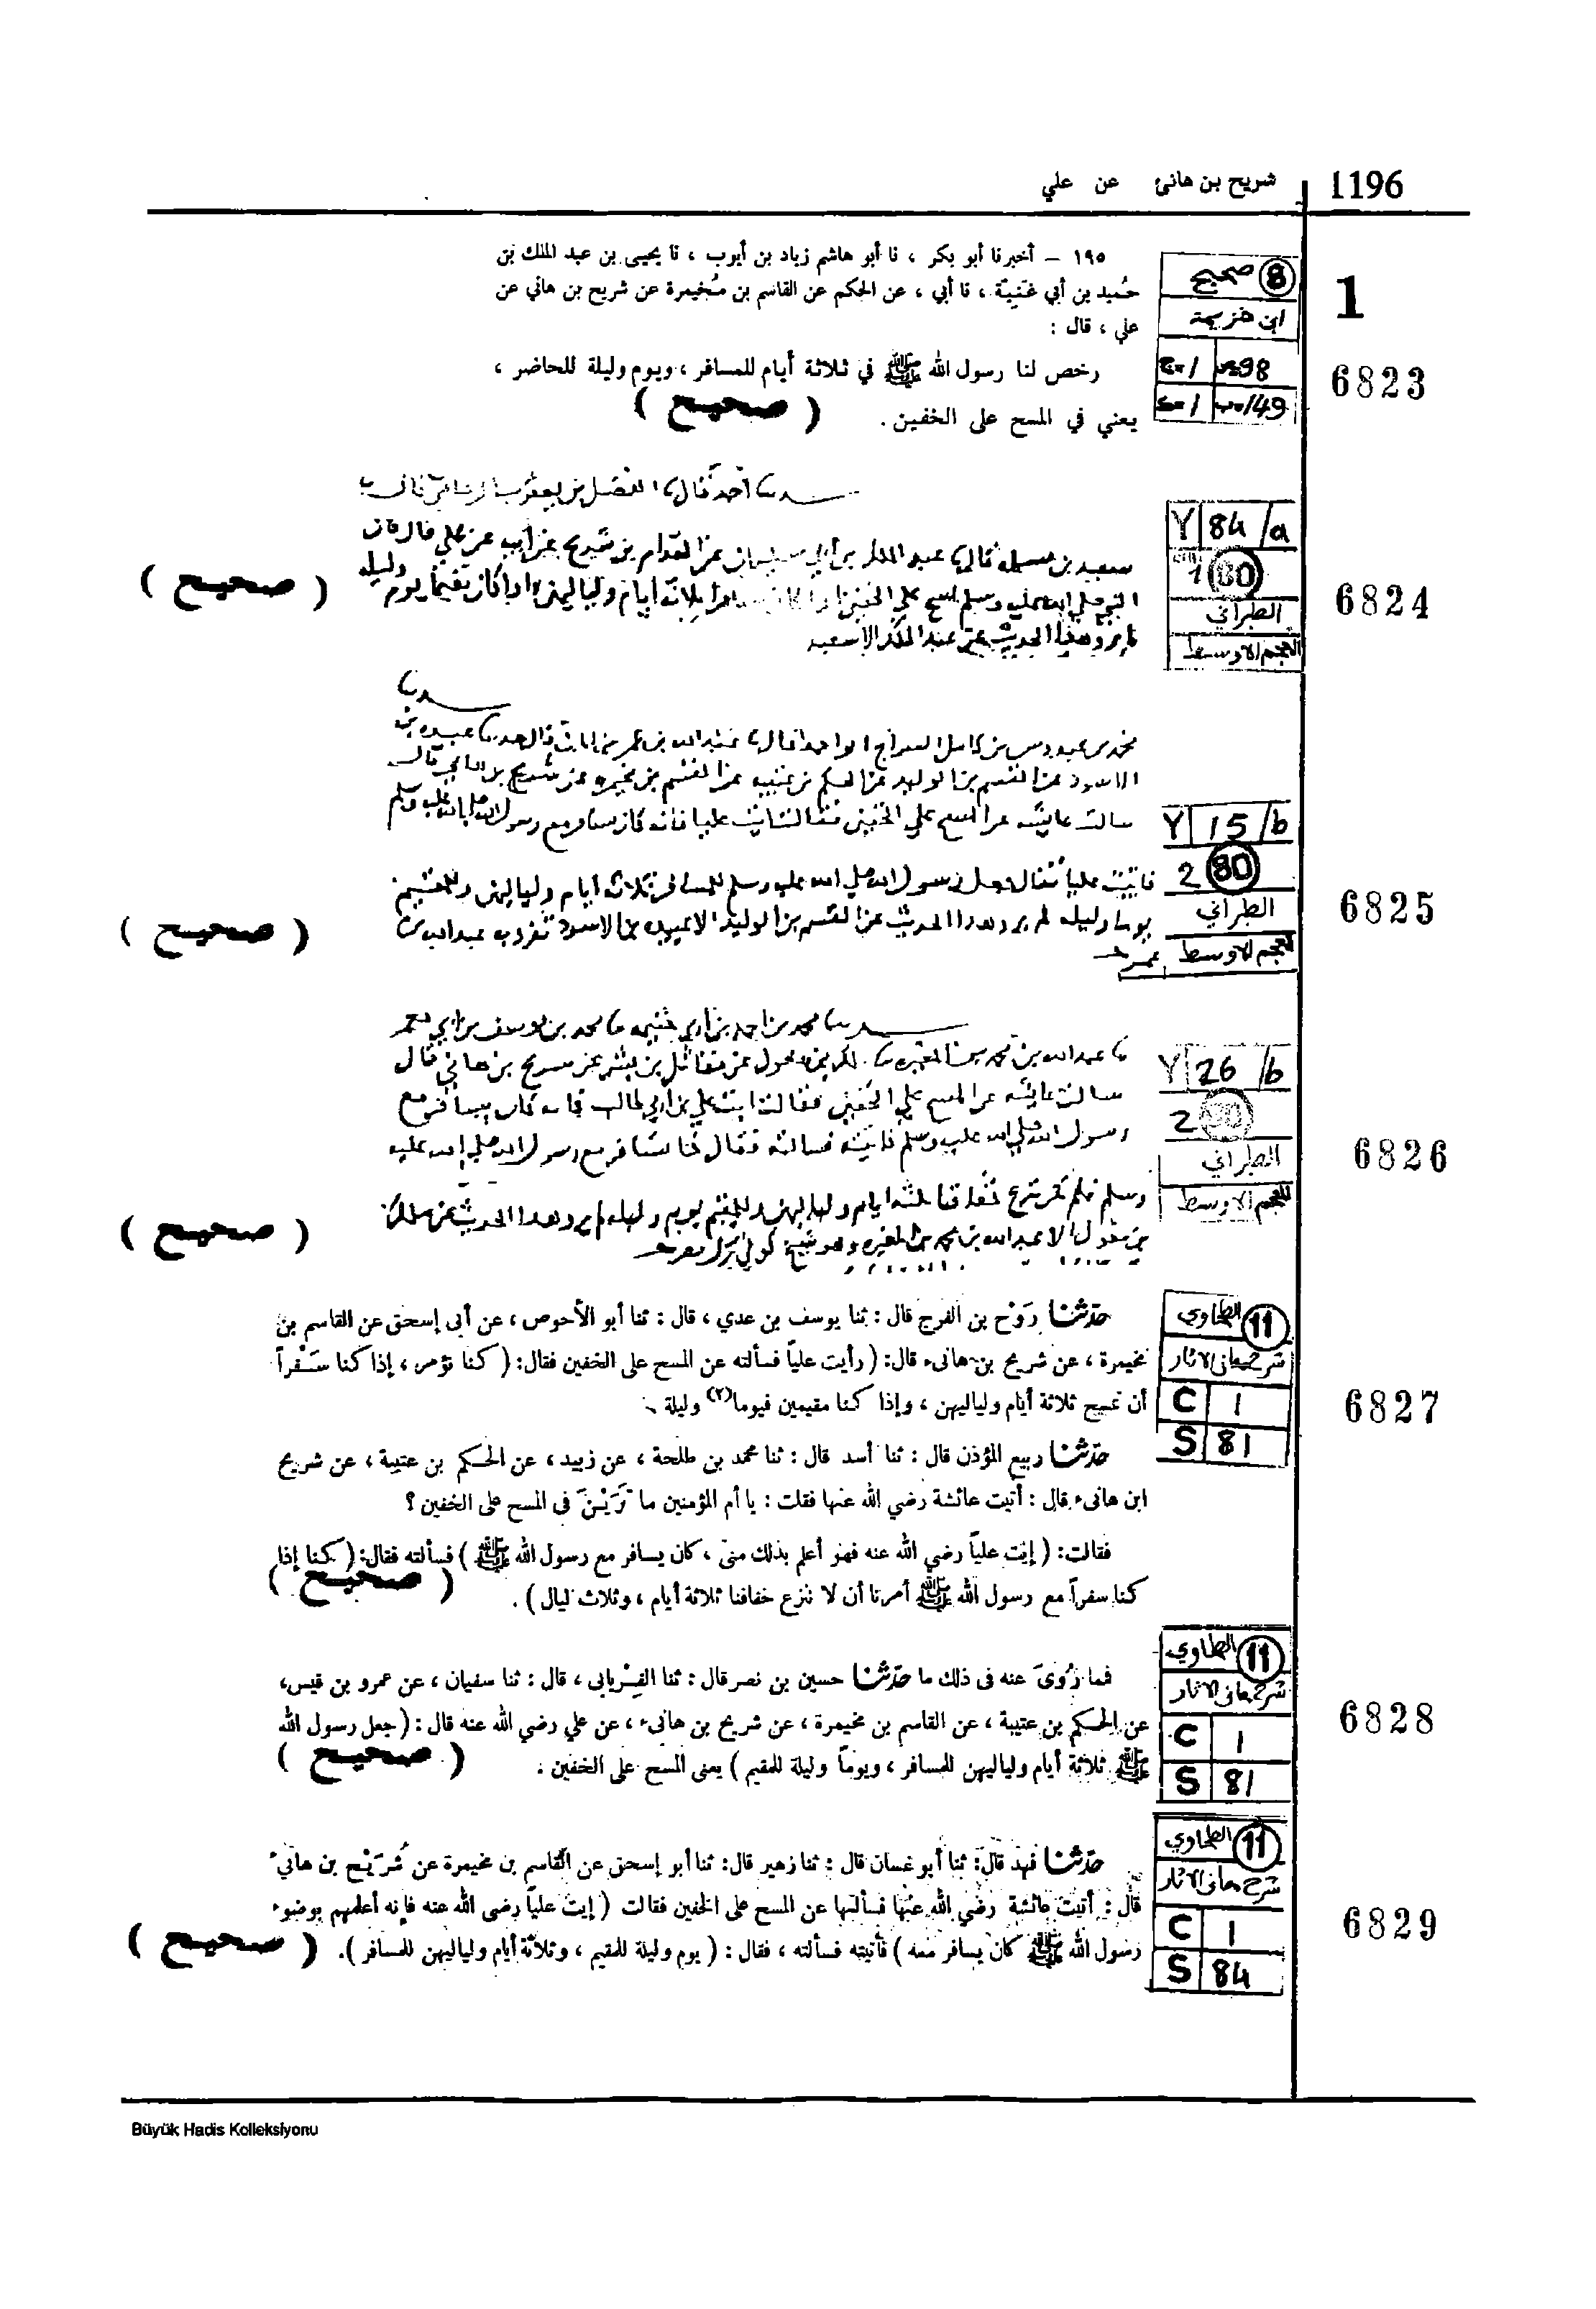 شريح بن هانئ عن علي 1196
١٩٥ – أخبرنا أبو بكر ، نا أبو هاشم زياد بن أيوب ، نا يحيى بن عبد الملك بن
حُميد بن أبي غَنيّة ، نا أبي ، عن الحكم عن القاسم بن مُخيمرة عن شريح بن هاني عن
علي ، قال :
رخص لنا رسول الله ﷺ في ثلاثة أيام للمسافر ، ويوم وليلة للحاضر ،
يعني في المسح على الخفين .
( صحيح )
8 صحيح
ابن خزيمة
ج=1 ص=98
ك=1 ب=149
1
6823
أحمد قال نا الفضل بن يعقوب قال نا
سعيد بن مسلمة قال نا عبد الملك بن أبي سليمان عن المقدام بن شريح عن أبيه عن علي قال كان
النبي صلى الله عليه وسلم يمسح على الخفين ثلاثة أيام ولياليهن واذا كان مقيما يوم وليلة
لم يرو هذا الحديث عن عبد الملك الا سعيد
( صحيح )
Y 84/a
1 80
الطبراني
المعجم الاوسط
6824
محمد بن عبدوس بن كامل السراج قال نا عبد الله بن عمر بن ابان قال نا عبيدة بن
الاسود عن القسم بن الوليد عن الحكم بن عتيبة عن القسم بن مخيمرة عن شريح بن هاني قال
سالت عايشة عن المسح على الخفين فقالت ايت عليا فانه كان يسافر مع رسول الله صلى الله عليه وسلم
فاتيت عليا فقال جعل رسول الله صلى الله عليه وسلم للمسافر ثلاثة ايام ولياليهن وللمقيم
يوما وليلة لم يرو هذا الحديث عن القسم بن الوليد الا عبيدة بن الاسود تفرد به عبد الله بن
عمر
( صحيح )
Y 15/b
2 80
الطبراني
المعجم الاوسط
6825
محمد بن احمد بن ابي خيثمة نا محمد بن يوسف بن ابي معمر
نا عبد الله بن محمد بن المغيرة نا مالك بن مغول عن مقاتل بن بشير عن شريح بن هاني قال
سالت عايشة عن المسح على الخفين فقالت ايت علي بن ابي طالب فانه كان يسافر مع
رسول الله صلى الله عليه وسلم فاتيته فسالته فقال كنا نسافر مع رسول الله صلى الله عليه
وسلم فلم نكن ننزع خفافنا ثلثة ايام ولياليهن وللمقيم يوم وليلة لم يرو هذا الحديث عن مالك
بن مغول الا عبد الله بن محمد بن المغيرة وهو شيخ كوفي
( صحيح )
Y 26/b
2 80
الطبراني
المعجم الاوسط
6826
حدّثنا رَوْح بن الفرج قال : ثنا يوسف بن عدي ، قال : ثنا أبو الأحوص ، عن أبى إسحق عن القاسم بن
مخيمرة ، عن شريح بن هانىء قال: ( رأيت علياً فسألته عن المسح على الخفين فقال: ( كنا نؤمر ، إذا كنا سَفْراً
أن نمسح ثلاثة أيام ولياليهن ، وإذا كنا مقيمين فيوما(٢) وليلة .
حدّثنا ربيع المؤذن قال : ثنا أسد قال : ثنا محمد بن طلحة ، عن زبيد ، عن الحكم بن عتيبة ، عن شريح
ابن هانىء قال : أتيت عائشة رضي الله عنها فقلت : يا أم المؤمنين ما تَرَيْنَ فى المسح على الخفين ؟
فقالت: ( إيت علياً رضي الله عنه فهو أعلم بذلك منى ، كان يسافر مع رسول الله ﷺ ) فسألته فقال: ( كنا إذا
كنا سفراً مع رسول الله ﷺ أمرنا أن لا ننزع خفافنا ثلاثة أيام ، وثلاث ليال ) .
( صحيح )
11 الطحاوي
شرح معانى الاثار
C 1
S 81
6827
فما رُوِىَ عنه فى ذلك ما حدّثنا حسين بن نصر قال : ثنا الفِرْيابى ، قال : ثنا سفيان ، عن عمرو بن قيس،
عن الحكم بن عتيبة ، عن القاسم بن مخيمرة ، عن شريح بن هانىء ، عن علي رضي الله عنه قال : ( جعل رسول الله
ﷺ ثلاثة أيام ولياليهن للمسافر ، ويوماً وليلة للمقيم ) يعنى المسح على الخفين .
( صحيح )
11 الطحاوي
شرح معانى الاثار
C 1
S 81
6828
حدّثنا فهد قال: ثنا أبو غسان قال : ثنا زهير قال: ثنا أبو إسحق عن القاسم بن مخيمرة عن شُرَيْح بن هانيء
قال : أتيت عائشة رضي الله عنها فسألتها عن المسح على الخفين فقالت ( إيت علياً رضى الله عنه فإنه أعلمهم بوضوء
رسول الله ﷺ كان يسافر معه ) فأتيته فسألته ، فقال : ( يوم وليلة للمقيم ، وثلاثة أيام ولياليهن للمسافر ).
( صحيح )
11 الطحاوي
شرح معانى الاثار
C 1
S 84
6829
Büyük Hadis Kolleksiyonu